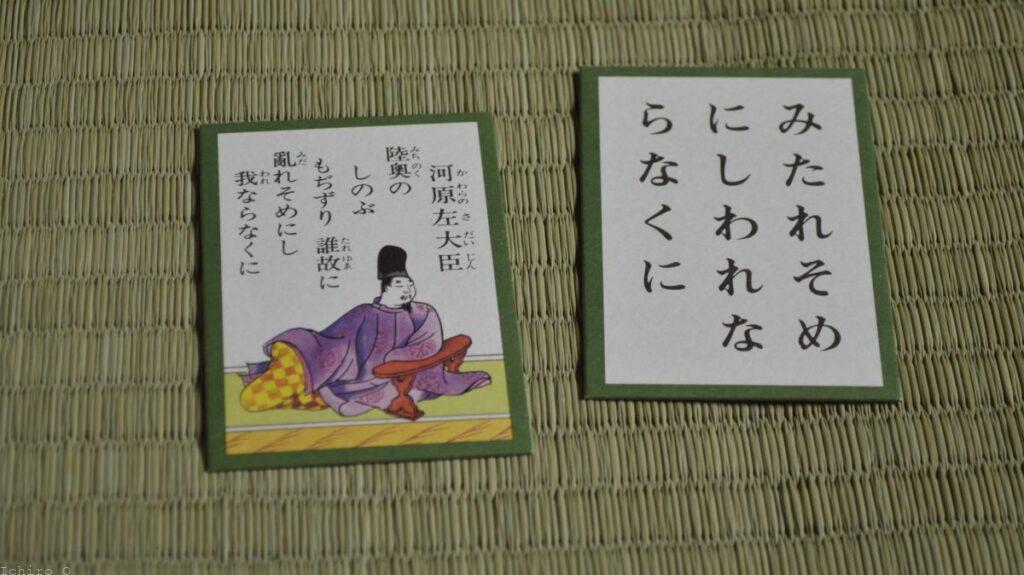 河原左大臣
かわらのさだいじん
陸奥の
みちのく
しのぶ
もぢずり 誰故に
たれゆゑ
亂れそめにし
みだ
我ならなくに
われ
みたれそめ
にしわれな
らなくに
Ichiro O